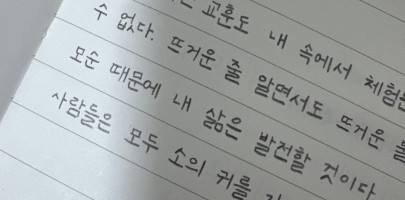 교훈도 내 속에서 체험
수 없다. 뜨거운 줄 알면서도 뜨거운
모순 때문에 내 삶은 발전할 것이다
사람들은 모두 소의 귀를